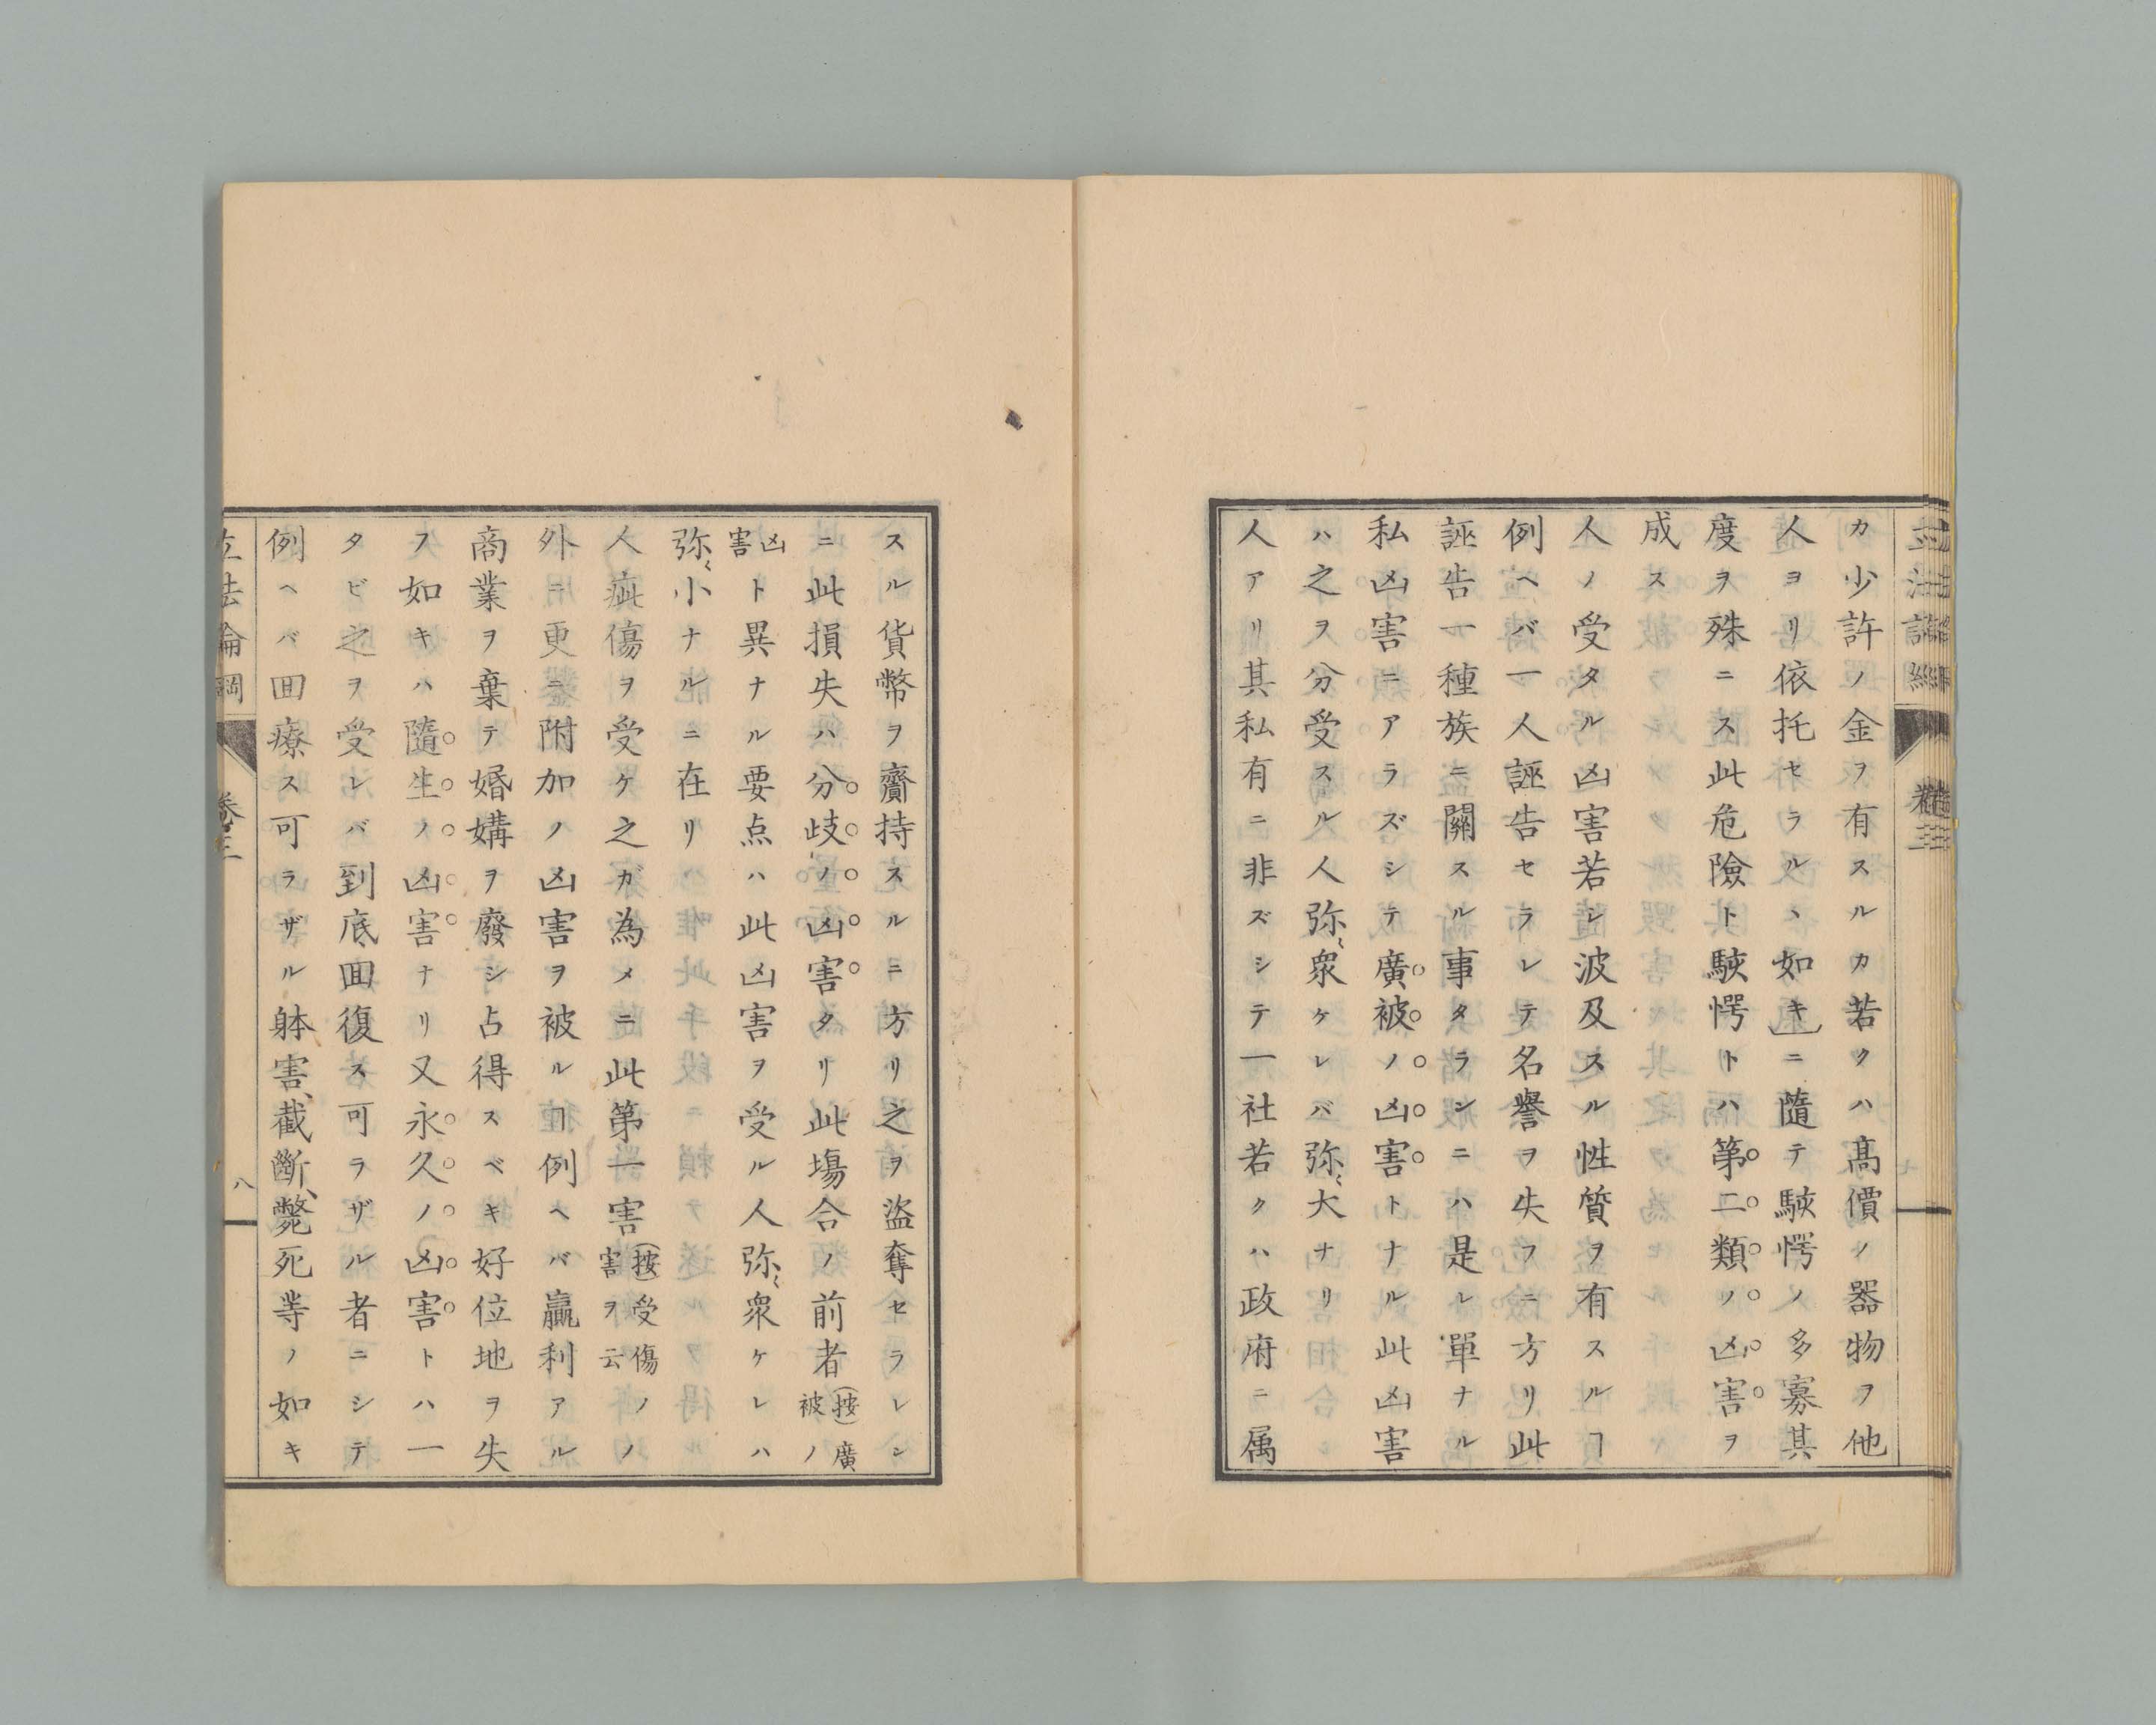 カ少許ノ金ヲ有スルカ若クハ髙價ノ器物ヲ他
人ヨリ依托セラルヽ如キ」ニ隨テ駭愕ノ多寡其
度ヲ殊ニス此危險ト駭愕トハ第二類ノ凶害ヲ
成ス
人ノ受タル凶害若シ波及スル性質ヲ有スルヿ
例ヘバ一人誣告セラレテ名譽ヲ失フニ方リ此
誣告一種族ニ關スル事タラシニハ是レ單ナル
私凶害ニアラズシテ廣被ノ凶害トナル此凶害
ハ之ヲ分受スル人弥〻衆ケレバ弥〻大ナリ
人アリ其私有ニ非ズシテ一社若クハ政府ニ属
スル貨幣ヲ齎持スルニ方リ之ヲ盜奪セラレシ
ニ此損失ハ分歧ノ凶害タリ此塲合ノ前者(按)廣被ノ
凶害ト異ナル要点ハ此凶害ヲ受ル人弥〻衆ケレハ
弥〻小ナルニ在リ
人疵傷ヲ受ケ之ガ為メニ此第一害(按)受傷ノ害ヲ云ノ
外ニ更ニ附加ノ凶害ヲ被ルヿ例ヘバ贏利アル
商業ヲ棄テ婚媾ヲ廢シ占得スベキ好位地ヲ失
フ如キハ隨生ノ凶害ナリ又永久ノ凶害トハ一
タビ之ヲ受レバ到底囬復ス可ラザル者ニシテ
例ヘバ囬療ス可ラザル躰害、截斷、斃死等ノ如キ
立法論綱
卷三
八